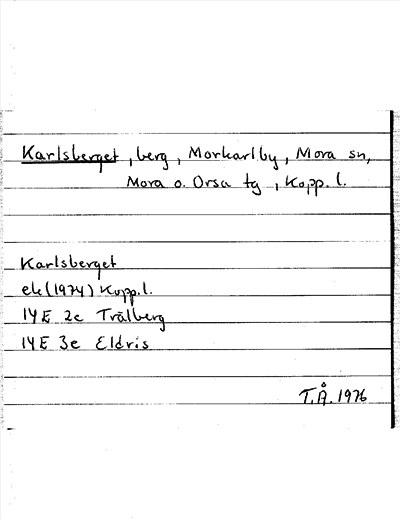 Karlsberget, berg, Morkarlby, Mora sn,
Mora o. Orsa tg, Kopp. l.
Karlsberget
ek (1974) Kopp. l.
14E 2c Trålberg
14E 3e Eldris
T.Å. 1976